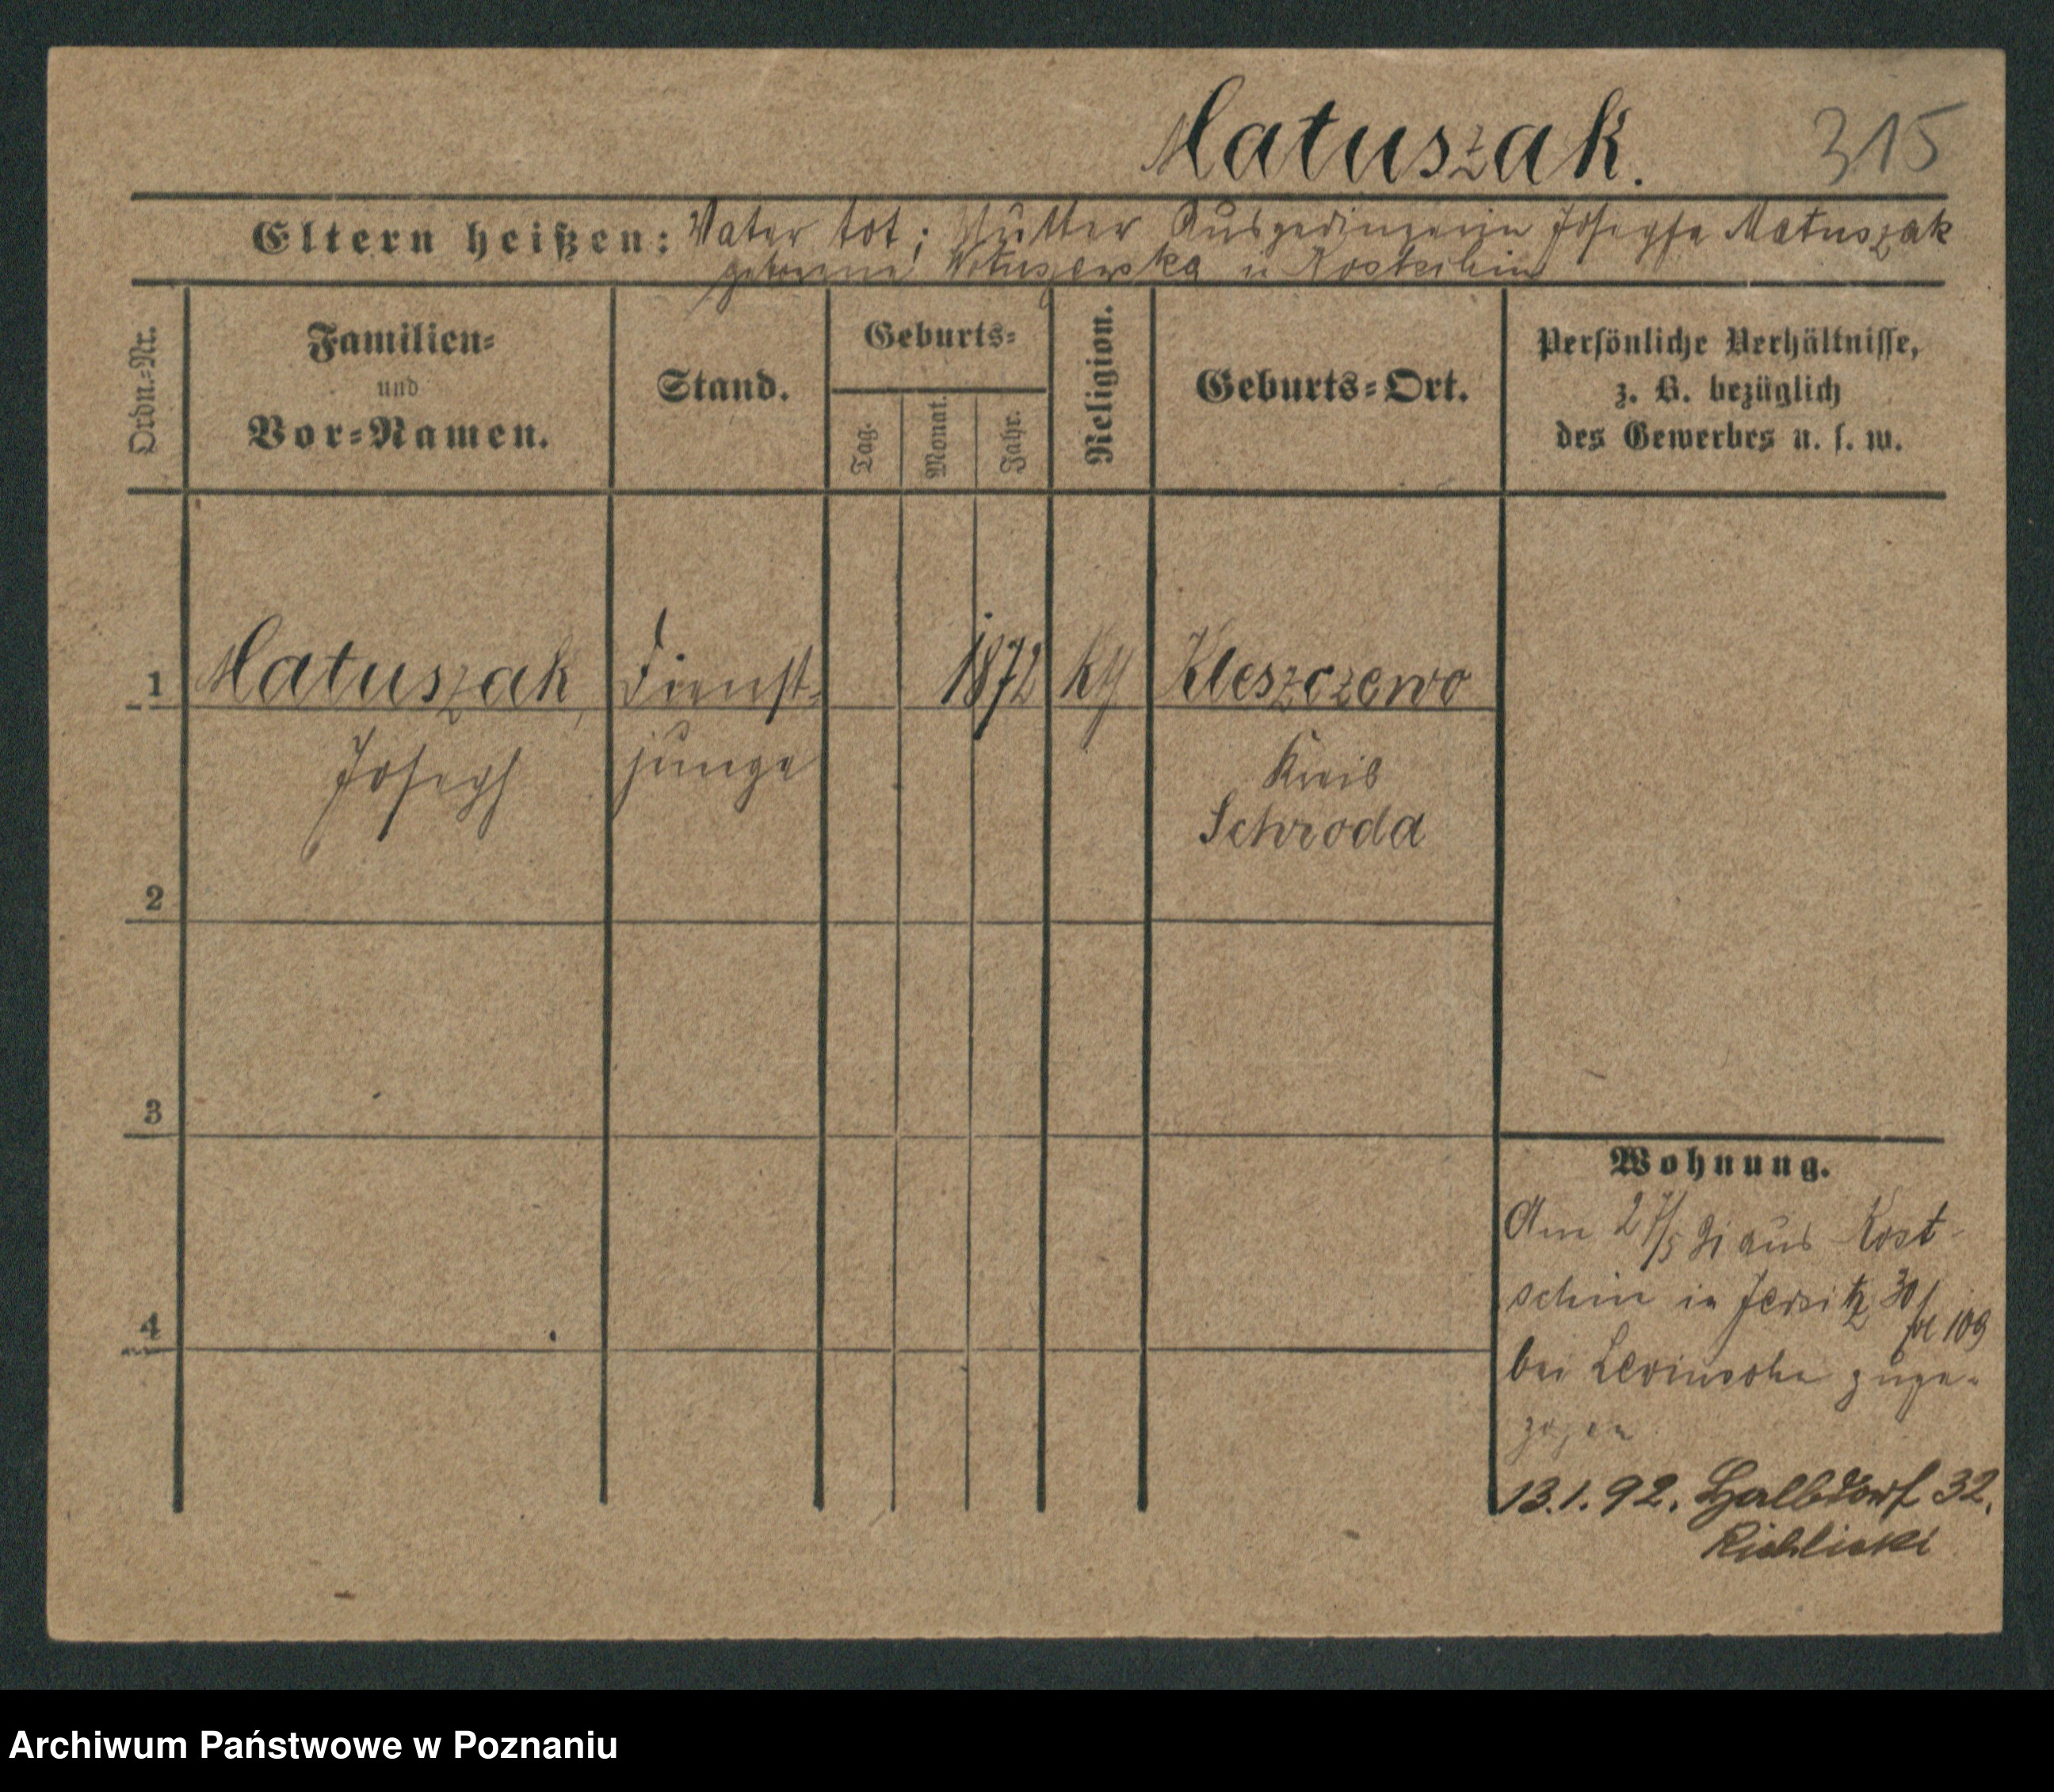 Matuszak. 315
Eltern heißen: Vater tot; Mutter Ausgedingerin Josepha Matuszak
geborene in Kostschin
Ordn.-Nr.
Familien-
und
Vor-Namen.
Stand.
Geburts-
Tag. Monat. Jahr.
Religion.
Geburts-Ort.
Persönliche Verhältnisse,
z. B. bezüglich
des Gewerbes u. s. w.
1 Matuszak, Dienst- 1872 Kleszczewo
Joseph junge Kreis
Schroda
2
3
4
Wohnung.
Am 27/5 91 aus Kost-
schin in Jersitz 30/ 109
bei Levinsohn zuge-
zogen
13.1.92. Halbdorf 32.
Archiwum Państwowe w Poznaniu